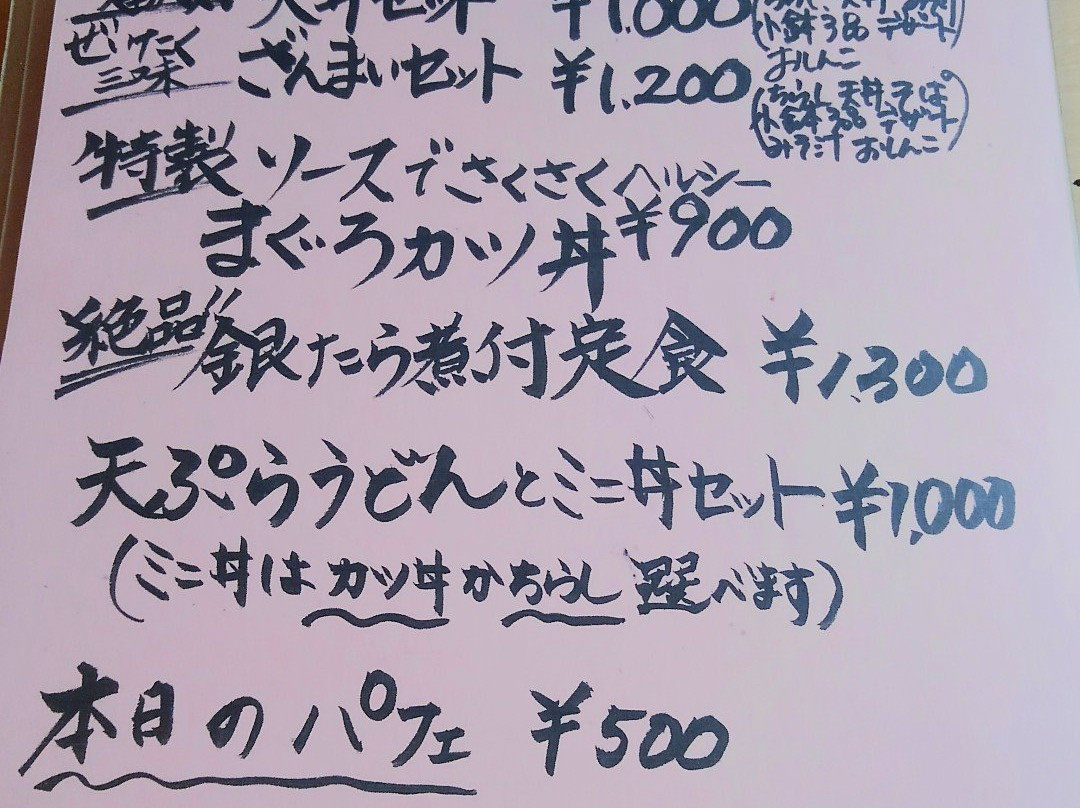 天丼セット ¥1,000
小鉢3品 デザート
おしんこ
ぜいたく
三昧 ざんまいセット ¥1,200
(ちらし 天丼 そば
小鉢3品 デザート
みそ汁 おしんこ)
特製 ソースでさくさくヘルシー
まぐろカツ丼 ¥900
絶品!! 銀たら煮付定食 ¥1,300
天ぷらうどんとミニ丼セット ¥1,000
(ミニ丼はカツ丼かちらし選べます)
本日のパフェ ¥500